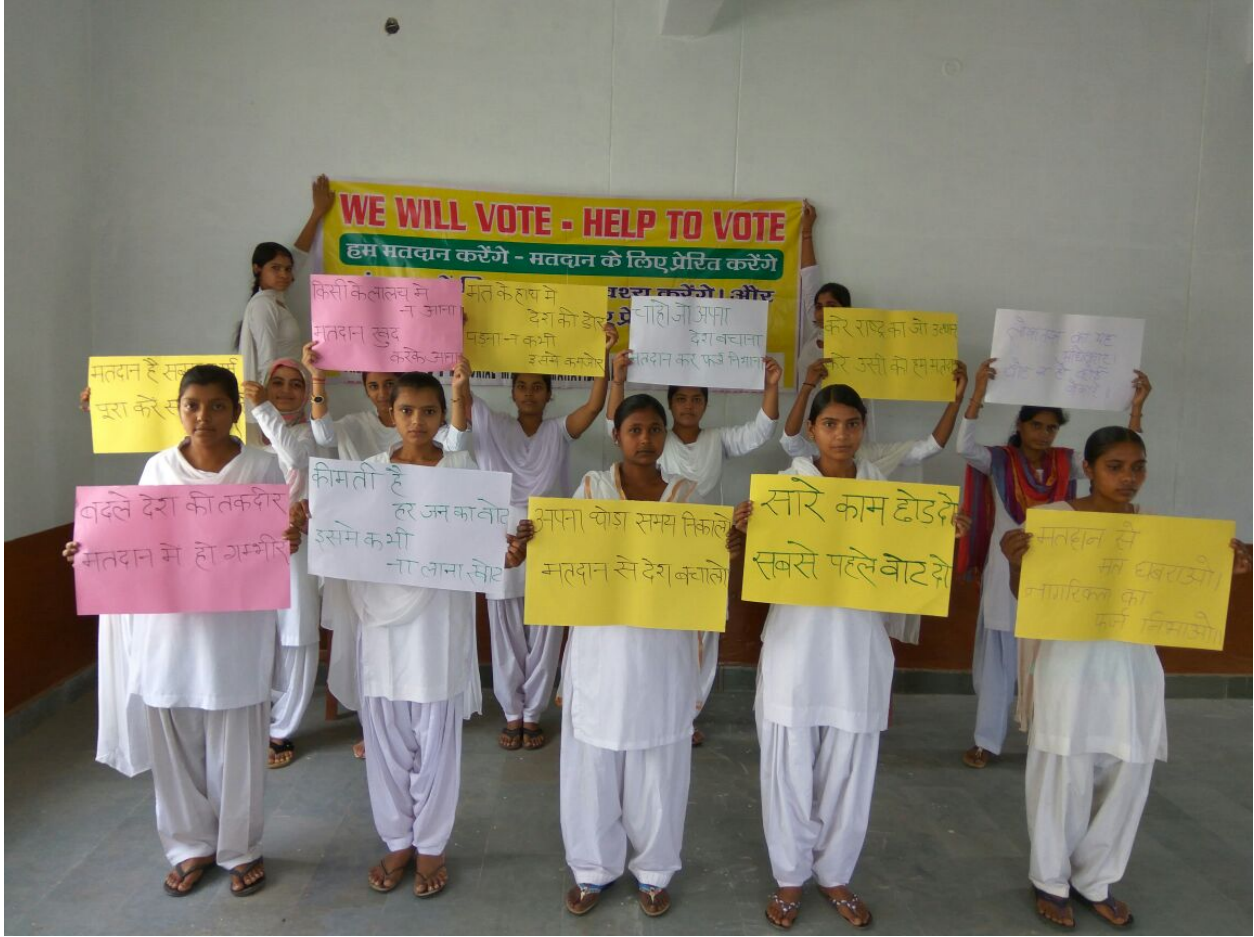 WE WILL VOTE - HELP TO VOTE
हम मतदान करेंगे - मतदान के लिए प्रेरित करेंगे
वश्य करेंगे। और
किसी के लालच मे
न आना
मतदान खुद
करके आना
मत के हाथ मे
देश की डोर
पड़ना न कभी
इसमे कमजोर
चाहो जो अपना
देश बचाना
मतदान कर फर्ज निभाना
करे राष्ट्र का जो उत्थान
करे उसी को हम मतदान
लोकतन्त्र का यह
मतदान है
पूरा करे
बदले देश की तकदीर
मतदान मे हो गम्भीर
कीमती है
हर जन का वोट
इसमे कभी
ना लाना खोट
अपना थोड़ा समय निकालो
मतदान से देश बचालो
सारे काम छोड दो
सबसे पहले वोट दो
मतदान से
मत घबराओ।
नागरिकता का
फर्ज निभाओ।